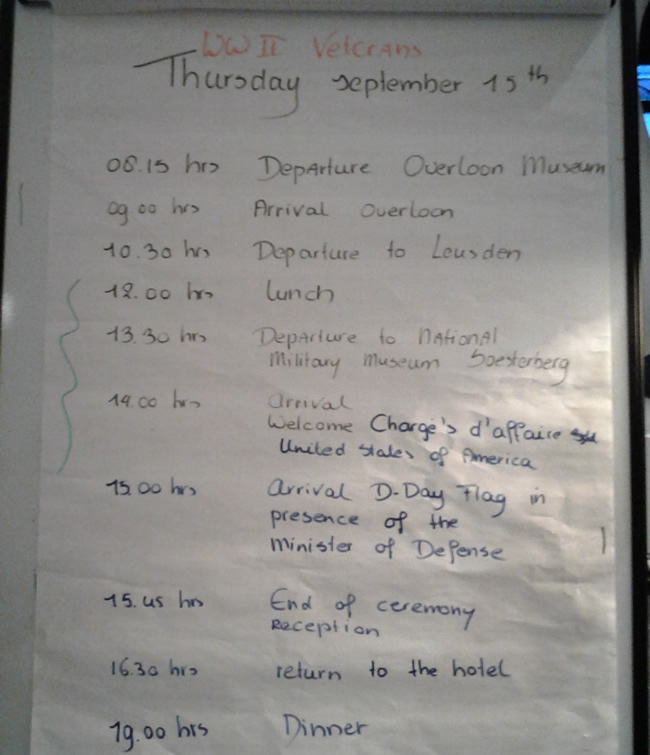 WW II Veterans
Thursday september 15th
08.15 hrs Departure Overloon Museum
09.00 hrs Arrival Overloon
10.30 hrs Departure to Leusden
12.00 hrs lunch
13.30 hrs Departure to National
Military Museum Soesterberg
14.00 hrs arrival
Welcome Chargé's d'affaire
United States of America
15.00 hrs arrival D-Day Flag in
presence of the
Minister of Defense
15.45 hrs End of ceremony
Reception
16.30 hrs return to the hotel
19.00 hrs Dinner